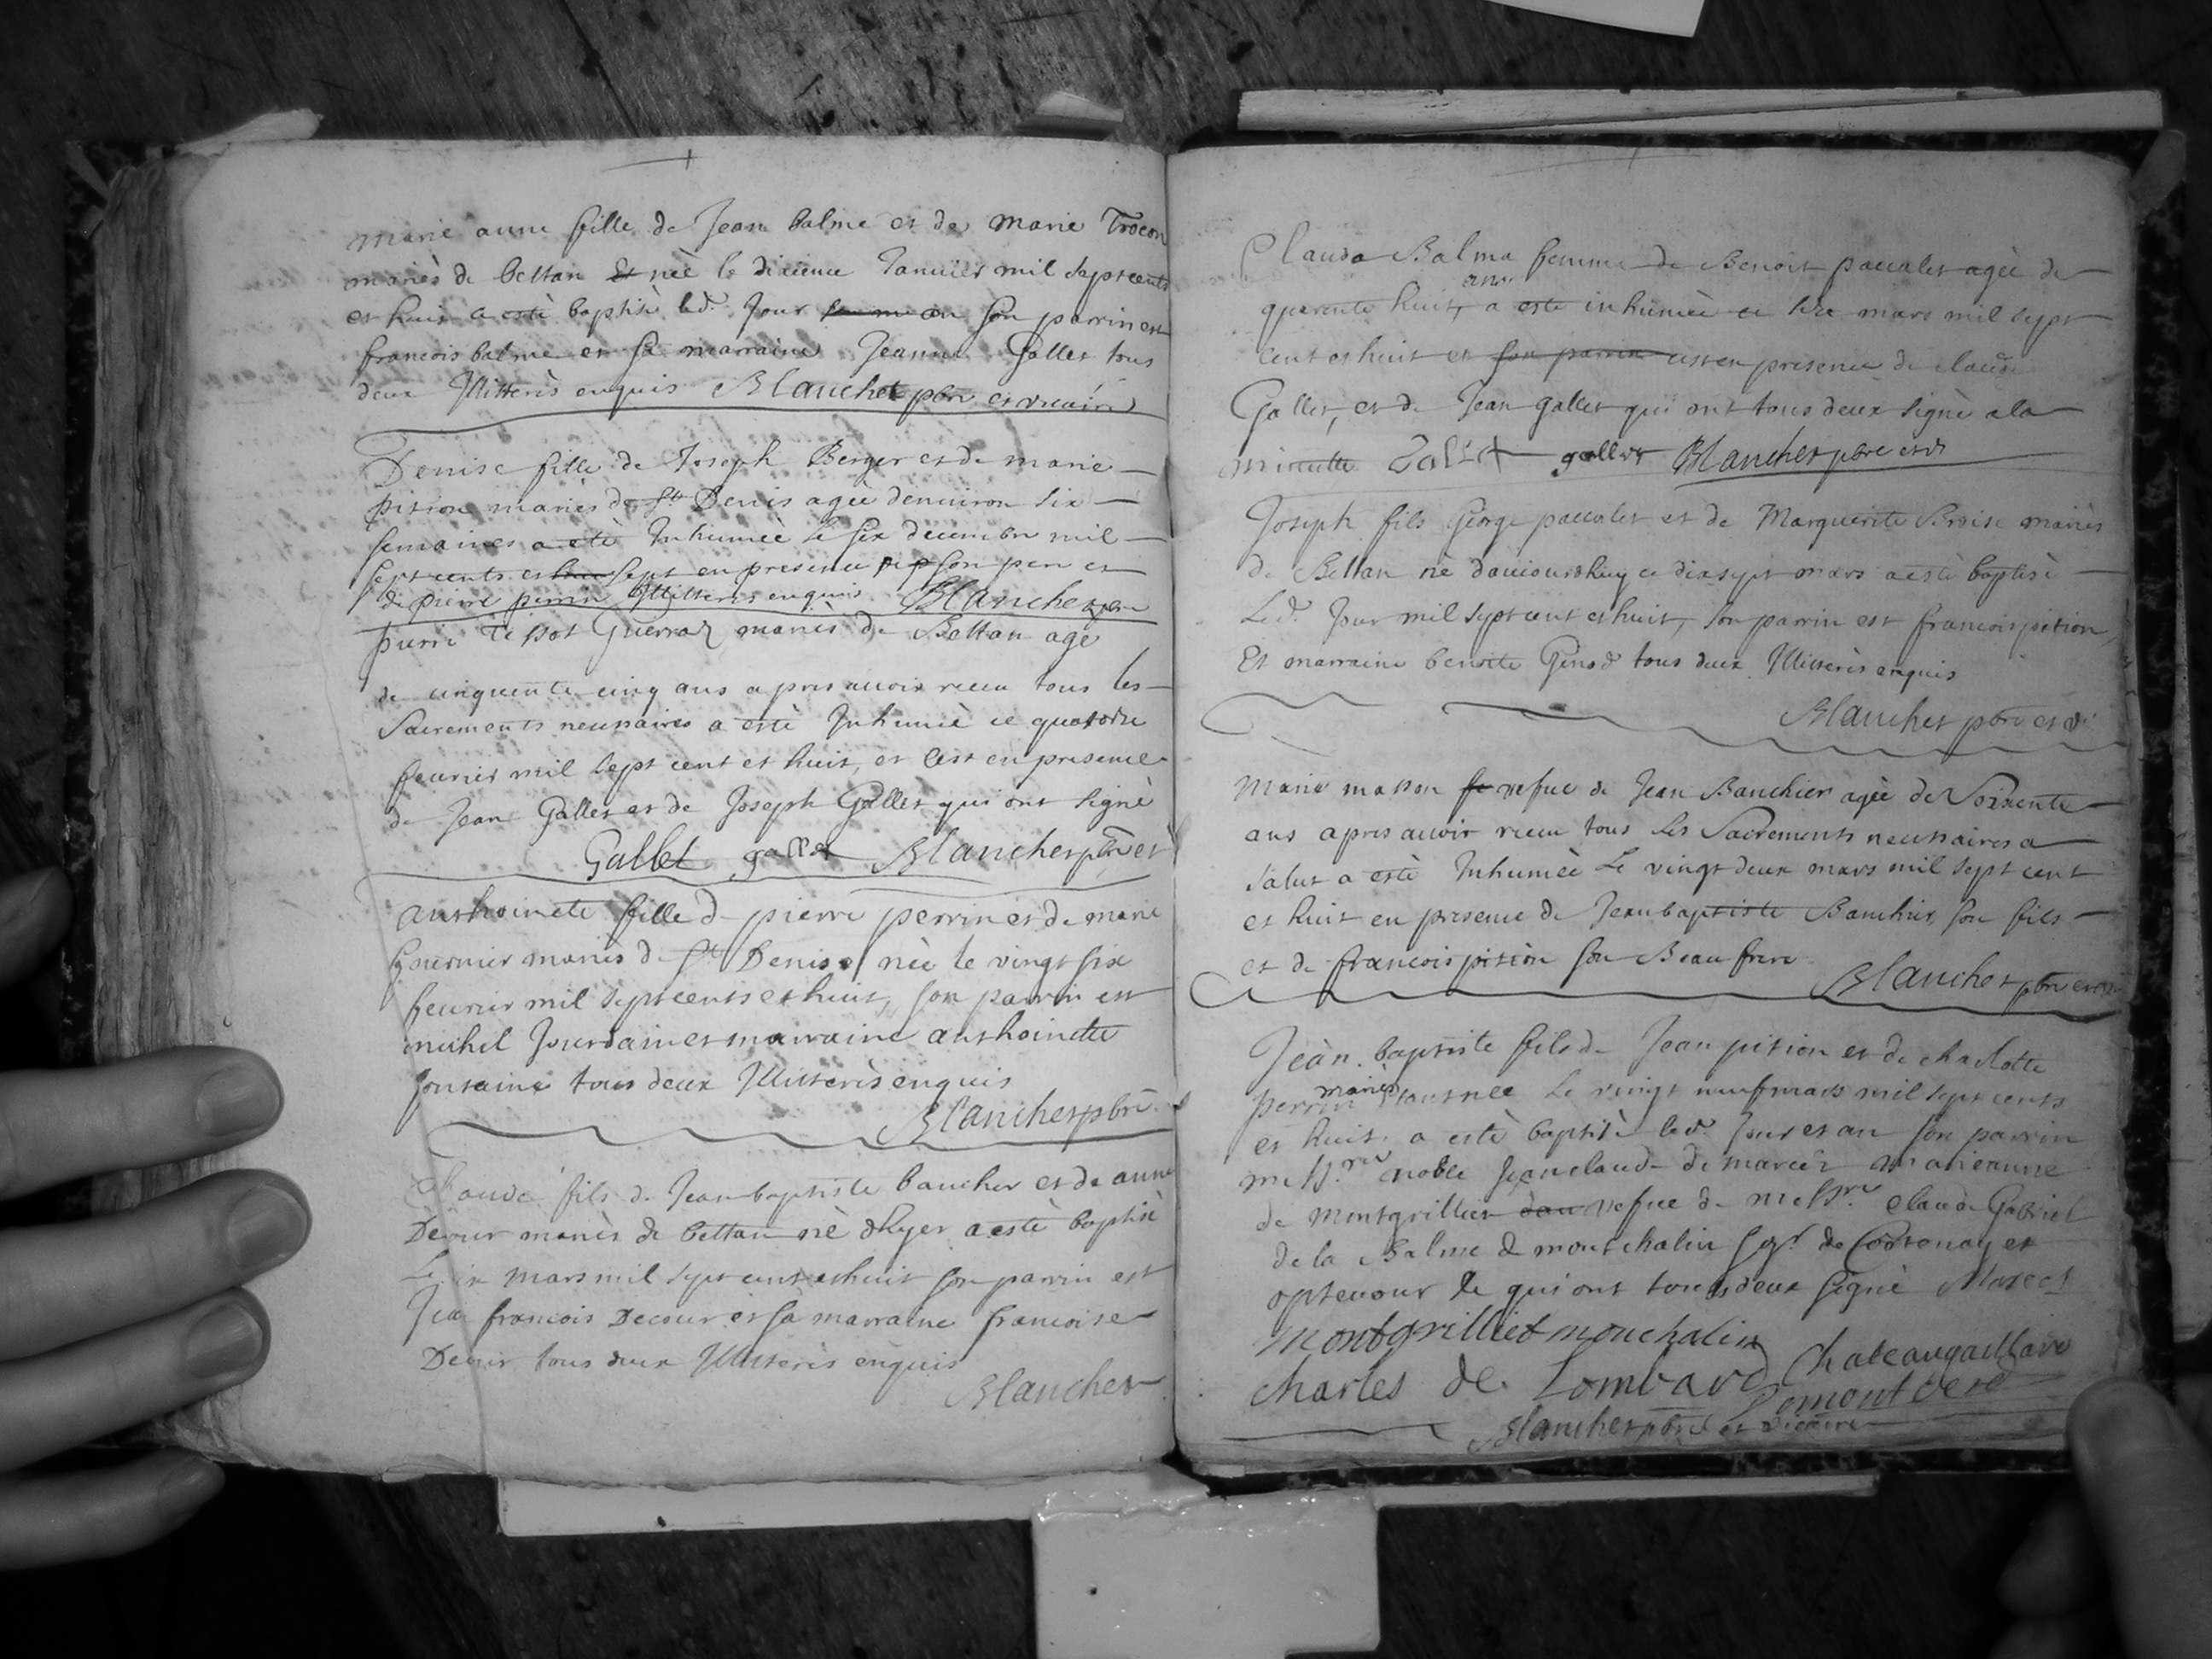 marie anne fille de Jean balme et de marie Trocon
mariés de bettan Et née le dixieme Janvier mil sept cents
et huit a estè baptisè led. Jour son parrin est
francois balme et sa marraine Jeanne Gallet tous
deux Illitterès enquis Blanchet pbre et vicaire
Denise fille de Joseph Berger et de marie
pition mariès de St Denis agèe denuiron six
semaines a etè Inhumèe le six decembre mil
sept cents et sept en presence de son pere et
de pierre perrin Illitterès enquis Blanchet pbre
pierre Tissot Guerraz mariès de Bettan agè
de cinquente cinq ans apres auoir receu tous les
Sacrements necessaires a estè Inhumè ce quatorze
feurier mil sept cent et huit, et cest en presence
de Jean Gallet et de Joseph Gallet qui ont signè
Gallet gallet Blanchet pbre et
anthoinete fille de pierre perrin et de marie
fournier mariès de St Denis nèe le vingt six
feurier mil sept cents et huit, son parrin est
michel Jourdain et marraine anthoinette
fontaine tous deux Illitterès enquis
Blanchet pbre
Claude fils de Jean baptiste baucher et de anne
Decour mariès de bettan nè dhyer a estè baptisè
Le ix mars mil sept cent et huit son parrin est
Jean francois Decour et sa marraine francoise
Decour tous deux Illitterès enquis
Blanchet
Clauda Balma femme de Benoit paccalet agèe de
ans
quarente huit, a estè inhumèe ce mars mil sept
cent et huit et son parrin cest en presence de claude
Gallet, et de Jean gallet qui ont tous deux signè a la
minutte Gallet gallet Blanchet pbre et v
Joseph fils George paccalet et de Marguerite Broise mariès
de Bettan nè daujourdhuy ce dixsept mars a estè baptisè
Led. Jour mil sept cent et huit, son parrin est francois pition
Et marraine benoite Genod tous deux Illitterès enquis
Blanchet pbre et v
marie masson vefue de Jean Bauchier agèe de Soixente
ans apres auoir receu tous les Sacrements necessaires a
salut a estè Inhumèe Le vingt deux mars mil sept cent
et huit en presence de Jean baptiste Bauchier, son fils
et de francois pition son Beau frere
Blanchet pbre et
Jean baptiste fils de Jean pition et de charlotte
mariès
perrin Le vingt neuf mars mil sept cents
et huit a estè baptisè led. Jour et an son parrin
mess.re noble Jean claude de marcet marie anne
de montgrillier vefue de mess.re claude Gabriel
de la Balme de montchalin sgr de Cortenay et
optevour le qui ont tous deux signè Marcet
montgrilliet mouchalin
charles de Lombard Chateaugaillard
Lomont
Blanchet pbre et vicaire